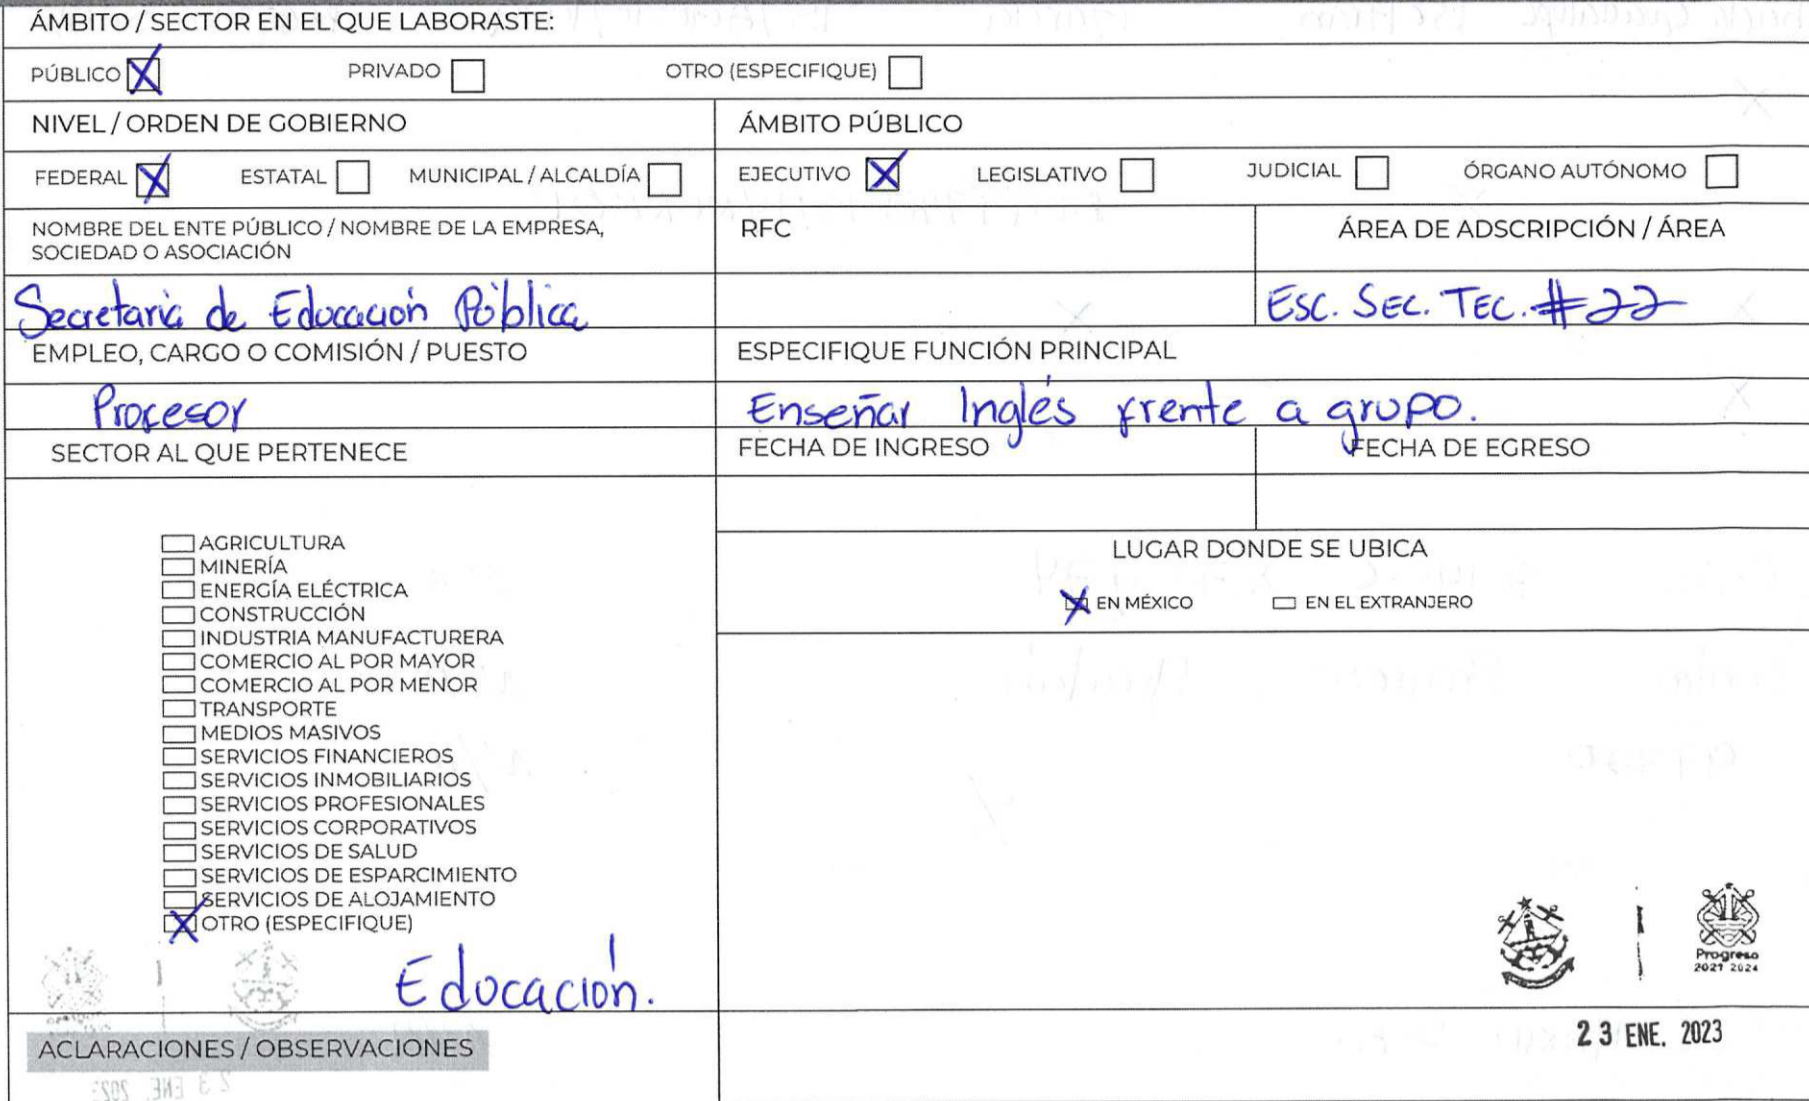 ÁMBITO / SECTOR EN EL QUE LABORASTE:
PÚBLICO PRIVADO OTRO (ESPECIFIQUE)
NIVEL / ORDEN DE GOBIERNO ÁMBITO PÚBLICO
FEDERAL ESTATAL MUNICIPAL / ALCALDÍA EJECUTIVO LEGISLATIVO JUDICIAL ÓRGANO AUTÓNOMO
NOMBRE DEL ENTE PÚBLICO / NOMBRE DE LA EMPRESA, SOCIEDAD O ASOCIACIÓN RFC ÁREA DE ADSCRIPCIÓN / ÁREA
Secretaria de Educación Pública ESC. SEC. TEC. #22
EMPLEO, CARGO O COMISIÓN / PUESTO ESPECIFIQUE FUNCIÓN PRINCIPAL
Profesor Enseñar Inglés frente a grupo.
SECTOR AL QUE PERTENECE FECHA DE INGRESO FECHA DE EGRESO
AGRICULTURA
MINERÍA
ENERGÍA ELÉCTRICA
CONSTRUCCIÓN
INDUSTRIA MANUFACTURERA
COMERCIO AL POR MAYOR
COMERCIO AL POR MENOR
TRANSPORTE
MEDIOS MASIVOS
SERVICIOS FINANCIEROS
SERVICIOS INMOBILIARIOS
SERVICIOS PROFESIONALES
SERVICIOS CORPORATIVOS
SERVICIOS DE SALUD
SERVICIOS DE ESPARCIMIENTO
SERVICIOS DE ALOJAMIENTO
OTRO (ESPECIFIQUE)
Educación.
LUGAR DONDE SE UBICA
EN MÉXICO EN EL EXTRANJERO
Progreso
2021 2024
23 ENE. 2023
ACLARACIONES / OBSERVACIONES